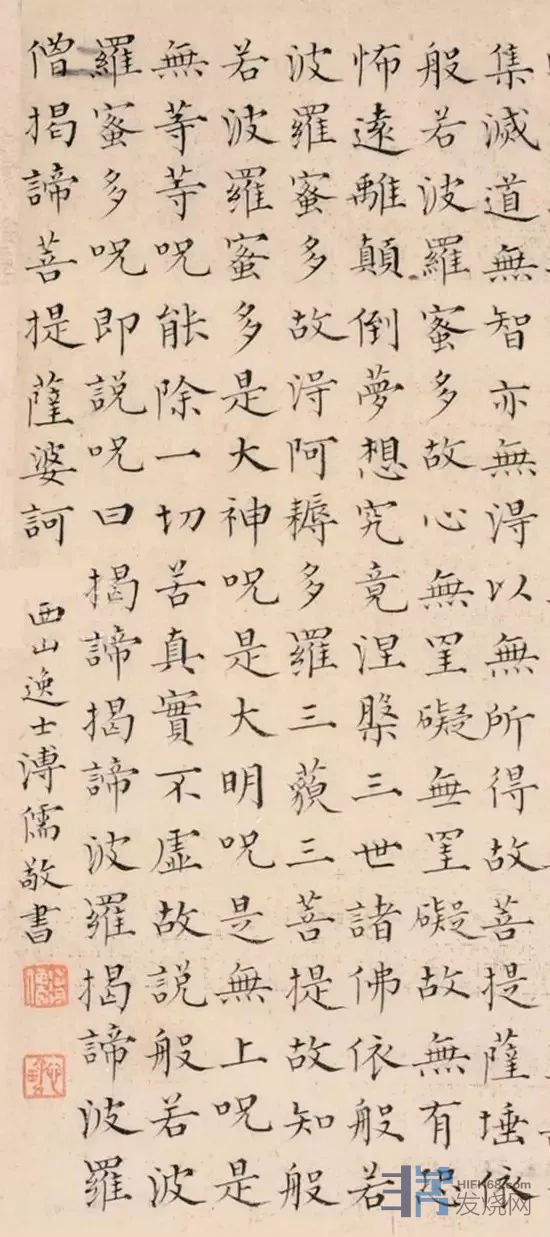 集滅道無智亦無淂以無所得故菩提薩埵依
般若波羅蜜多故心無罣礙無罣礙故無有恐
怖遠離顛倒夢想究竟涅槃三世諸佛依般若
波羅蜜多故淂阿耨多羅三藐三菩提故知般
若波羅蜜多是大神呪是大明呪是無上呪是
無等等呪能除一切苦真實不虛故說般若波
羅蜜多呪即說呪曰揭諦揭諦波羅揭諦波羅
僧揭諦菩提薩婆訶
西山逸士溥儒敬書
发烧网